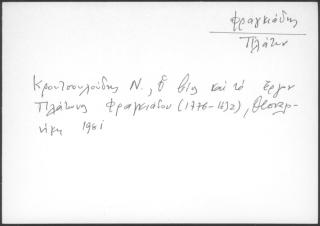 Φραγκιάδης
Πλάτων
Κρουτσουλούδης Ν., Ο βίος και το έργον
Πλάτωνος Φραγκιάδου (1776-1892), Θεσσαλο-
νίκη 1961